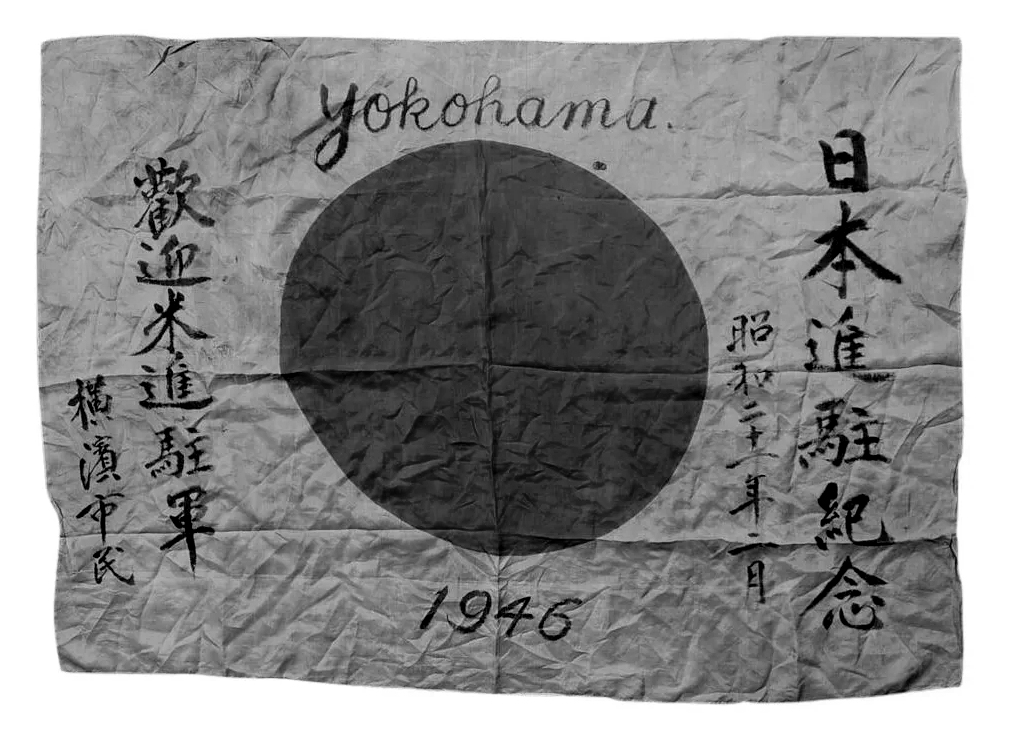 Yokohama.
日本進駐紀念
昭和二十一年二月
歡迎米進駐軍
横濱市民
1946